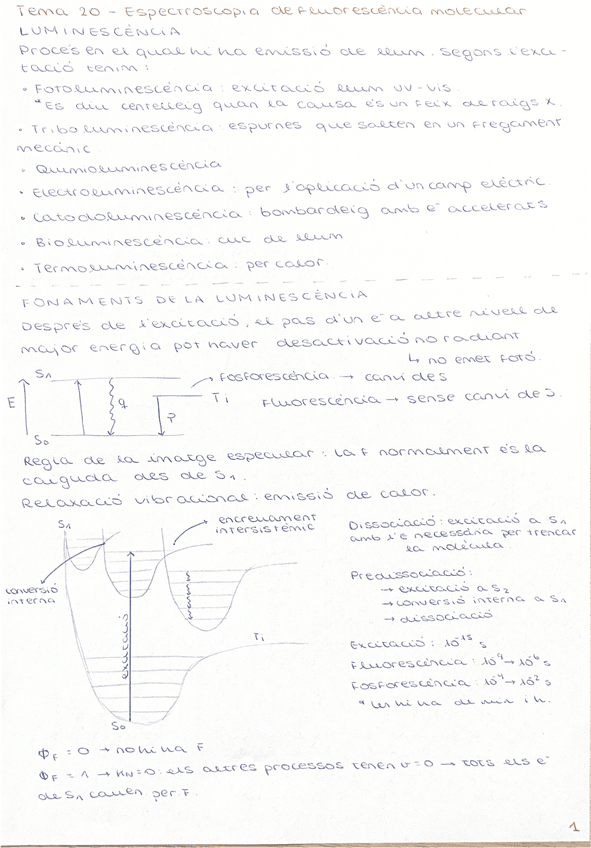 Tema 20 - Espectroscopia de Fluorescència molecular
LUMINESCÈNCIA
Procés en el qual hi ha emissió de llum. Segons l'exci-
tació tenim:
· Fotoluminescència: excitació llum UV-VIS.
*Es diu centelleig quan la causa és un feix de raigs X.
· Triboluminescència: espurnes que salten en un fregament
mecànic.
· Quimioluminescència
· Electroluminescència: per l'aplicació d'un camp elèctric.
· Catodoluminescència: bombardeig amb e⁻ accelerats
· Bioluminescència: cuc de llum
· Termoluminescència: per calor.
FONAMENTS DE LA LUMINESCÈNCIA
Després de l'excitació, el pas d'un e⁻ a altre nivell de
major energia pot haver desactivació no radiant
↳ no emet fotó.
S₁
Fosforescència → canvi de S
E
q
P
T₁
Fluorescència → sense canvi de S.
S₀
Regla de la imatge especular: la F normalment és la
caiguda des de S₁.
Relaxació vibracional: emissió de calor.
S₁
encreuament
intersistèmic
conversió
interna
excitació
T₁
S₀
Dissociació: excitació a S₁
amb l'E necessària per trencar
la molècula.
Predissociació:
→ excitació a S₂
→ conversió interna a S₁
→ dissociació
Excitació: 10⁻¹⁵ s
Fluorescència: 10⁻⁹ → 10⁻⁶ s
Fosforescència: 10⁻⁴ → 10² s
hi ha de min i h.
ΦF = 0 → no hi ha F
ΦF = 1 → KN=0: els altres processos tenen v=0 → tots els e⁻
de S₁ cauen per F.
1